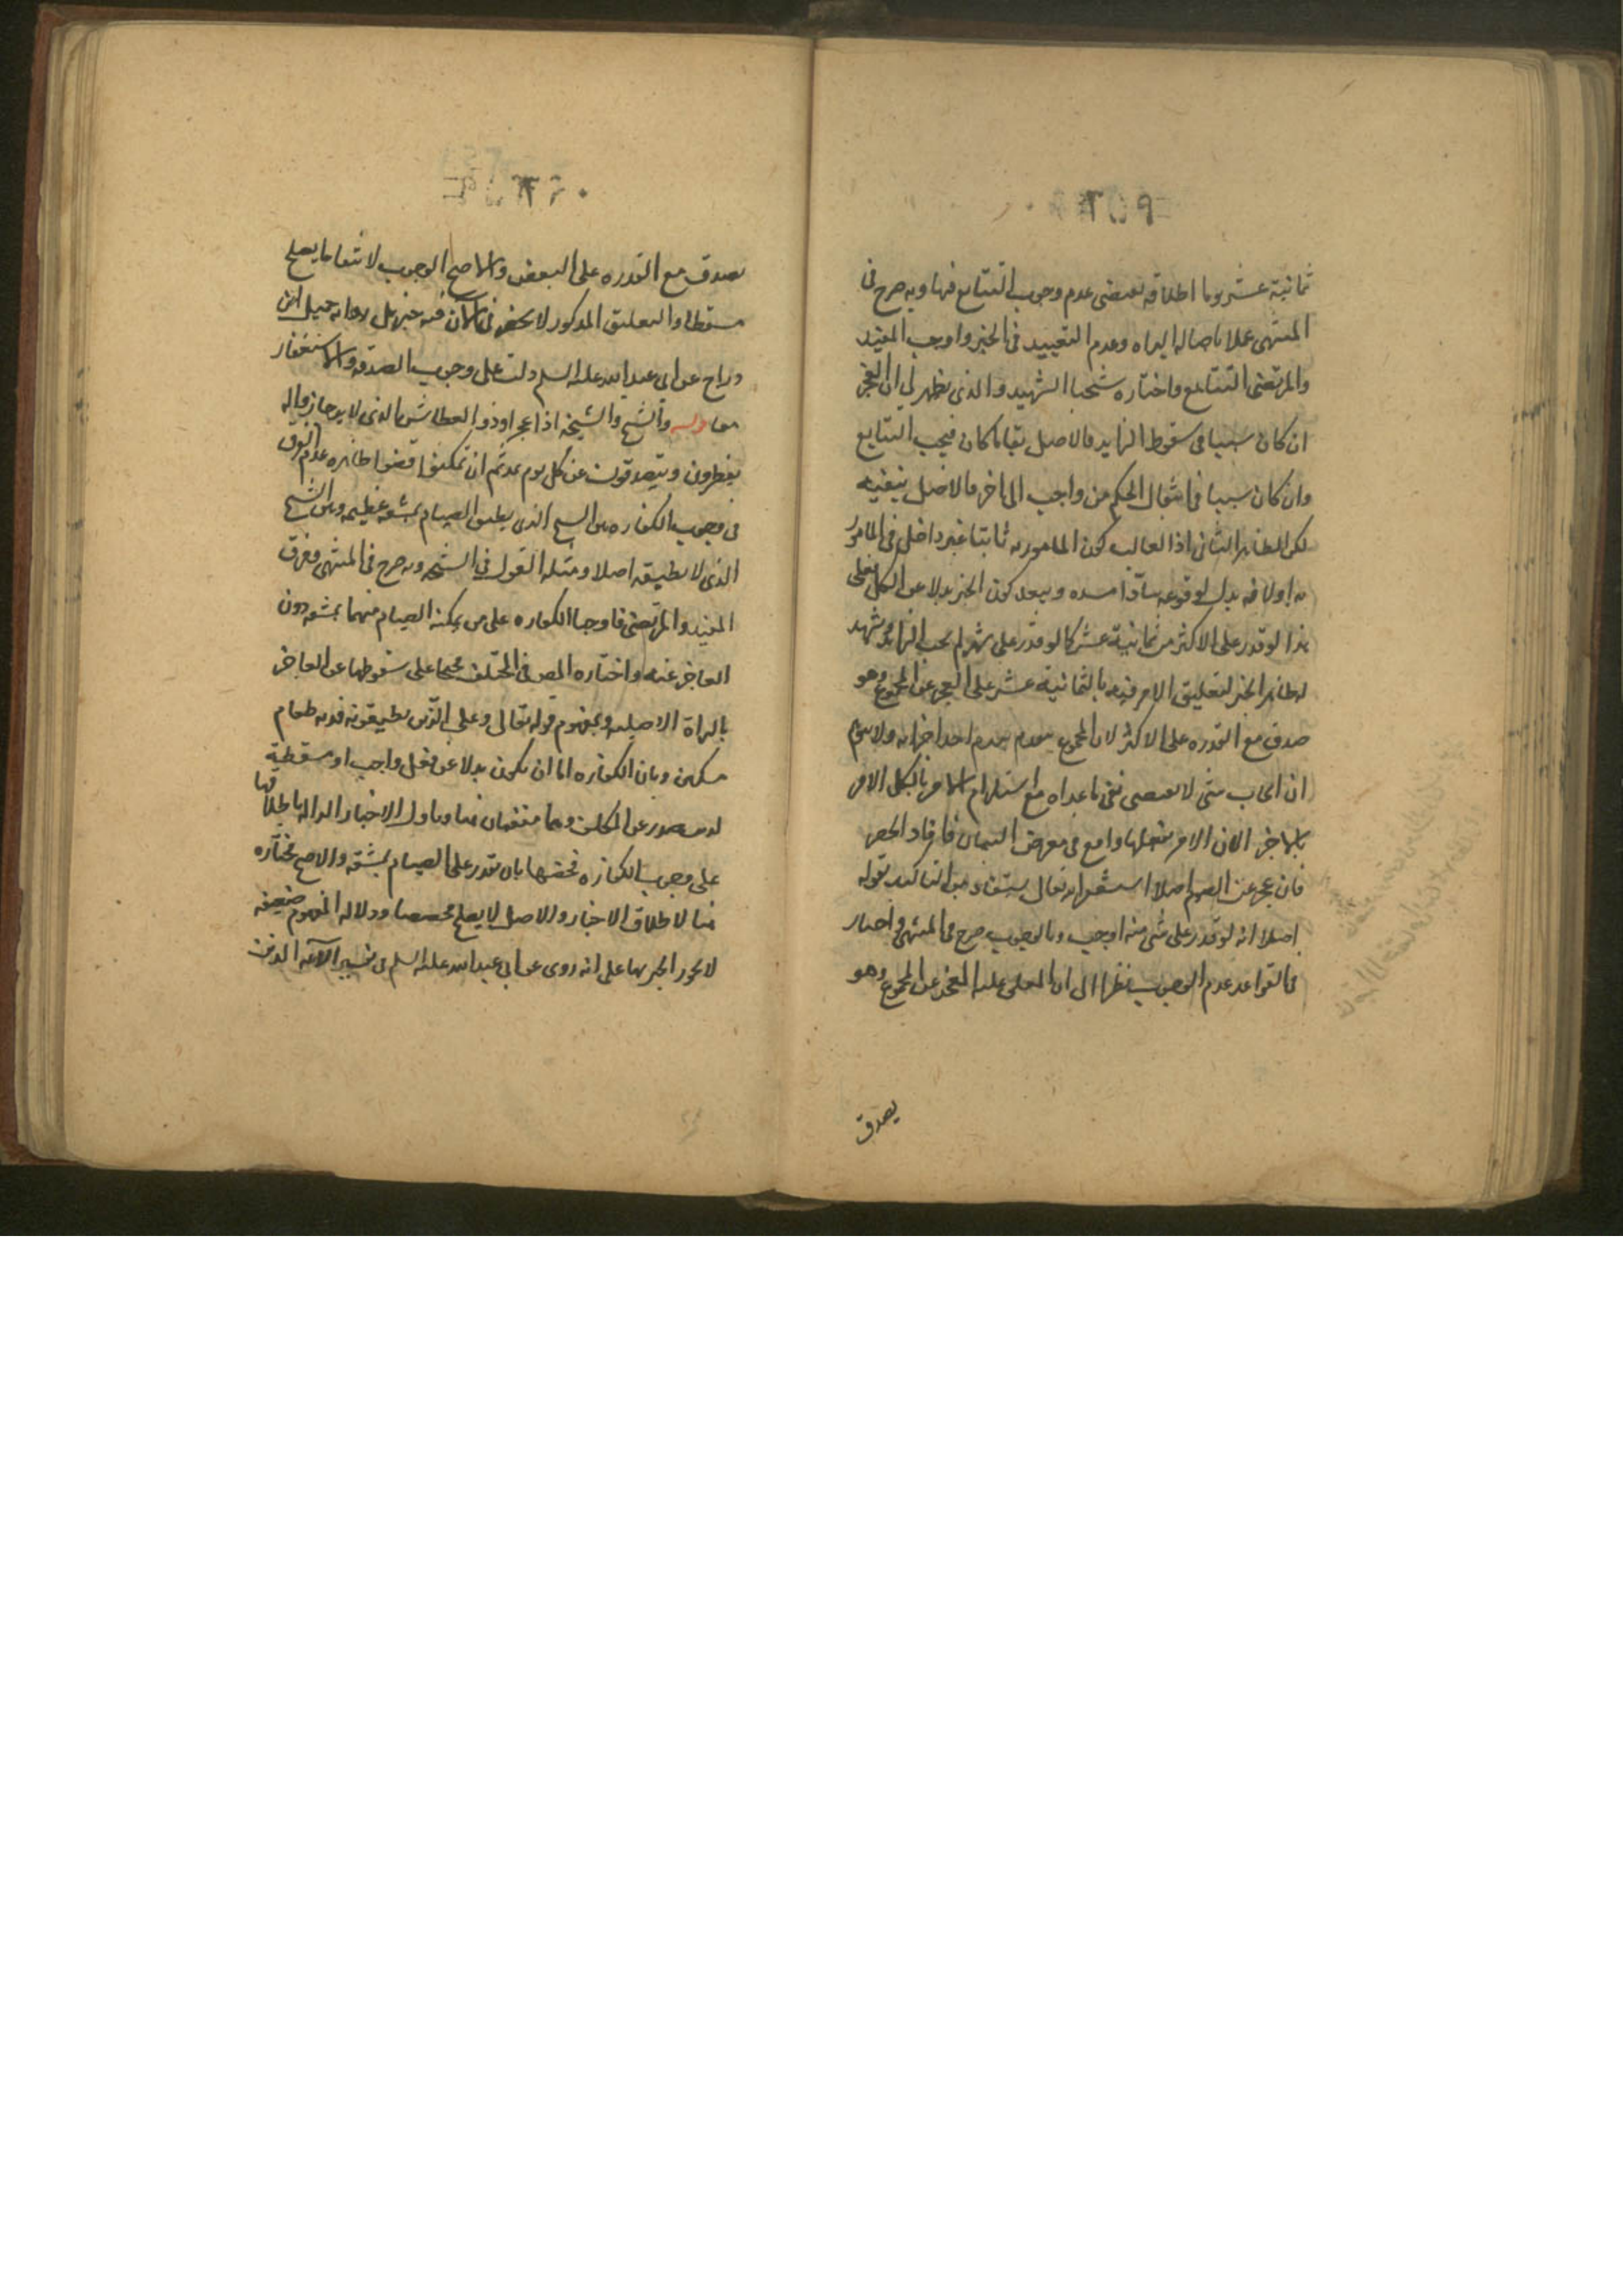 ثمانية عشر يوما اطلاقه يقتضى عدم وجوب التتابع فيها وبه صرح فى
المنتهى عملا باصالة البراه وعدم التقييد فى الخبر واوجب المفيد
والمرتضى التتابع واختاره شيخنا الشهيد والذى يظهر لى ان العجز
ان كان سببا فى سقوط الزايد فالاصل بقا ما كان فيجب التتابع
وان كان سببا فى انتقال الحكم من واجب الى اخر فالاصل ينفيه
لكن الظاهر الثانى اذ الغالب كون المامور به ثانيا غير داخل فى المامور
به اولا فه بدل لوقوعه سادا مسده ويبعد كون الجزء بدلا عن الكل فعلى
هذا لو قدر على الاكثر من ثمانية عشر كما لو قدر على شهر لم يجب الزايد
لظاهر الخبر لتعليق الامر فيه بالثمانية عشر على العجز عن المجموع وهو
صدق مع القدره على الاكثر لان المجموع يعدم بعدم احد اجزائه ولا
ان ايجاب شى لا يقتضى نفى ما عداه مع استلزام الامر بالكل الامر
بالجزء لان الامر بفعلها واقع فى معرض البيان فافاد الحصر
فان عجز عن الصوم اصلا استغفر الله تعالى يستفاد من التاكيد بقوله
اصلا انه لو قدر على شى منه اوجب وبالوجوب صرح فى المنتهى واختار
فى القواعد عدم الوجوب نظرا الى ان المعلق عليه العجز عن المجموع وهو
يصدق
يصدق مع القدره على البعض والاصح الوجوب لانتفا ما يصلح
مسقطا والتعليق المذكور لا يحضرنى الان فيه خبر بل رواية جميل ابن
دراج عن ابى عبد الله عليه السلم دلت على وجوب الصدقه والاستغفار
معا قوله والشيخ والشيخه اذا عجزا وذو العطاش الذى لا يرجا زواله
يفطرون ويتصدقون عن كل يوم بمد ثم ان تمكنوا قضوا ظاهره عدم الفرق
فى وجوب الكفاره بين الشيخ الذى يطيق الصيام بمشقه عظيمه وبين الشيخ
الذى لا يطيقه اصلا ومثله القول فى الشيخه وبه صرح فى المنتهى وفرق
المفيد والمرتضى فاوجبا الكفاره على من يمكنه الصيام منهما بمشقه دون
العاجز عنه واختاره المص فى المختلف محتجا على سقوطها عن العاجز
بالبراة الاصليه وبمفهوم قوله تعالى وعلى الذين يطيقونه فديه طعام
مسكين وبان الكفاره اما ان يكون بدلا عن فعل واجب او مسقطة
لذنب صدر عن المكلف وهما منتفيان هنا وباول الاخبار الداله باطلاقها
على وجوب الكفاره فخصها بان يقدر على الصيام بمشقه والاصح مختاره
هنا لاطلاق الاخبار والاصل لا يصلح مخصصا ودلاله المفهوم ضعيفه
لا يجوز الجبر بها على انه روى عن ابى عبد الله عليه السلم فى تفسير الايه الذين